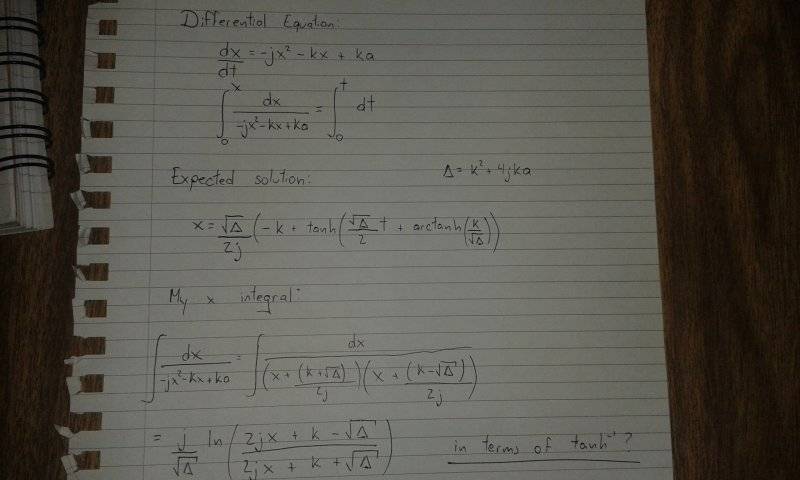 Differential Equation:
dx/dt = -jx² - kx + ka
∫₀ˣ dx/(-jx² - kx + ka) = ∫₀ᵗ dt
Expected solution: Δ = k² + 4jka
x = √Δ/2j (-k + tanh(√Δ/2 t + arctanh(k/√Δ)))
My x integral:
∫ dx/(-jx² - kx + ka) = ∫ dx/((x + (k+√Δ)/2j)(x + (k-√Δ)/2j))
= j/√Δ ln((2jx + k - √Δ)/(2jx + k + √Δ)) in terms of tanh⁻¹?